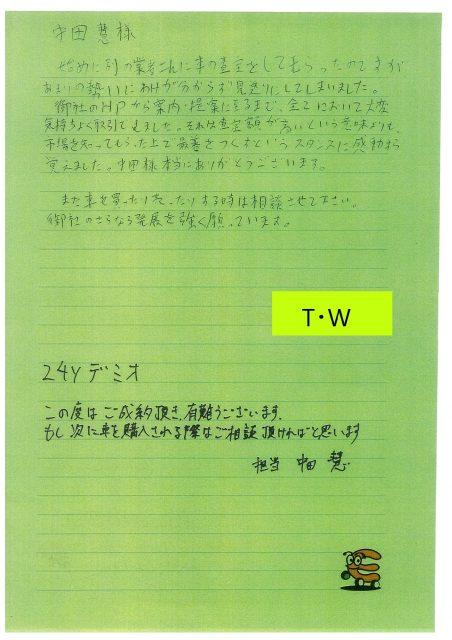 中田慧様
始めに別の業者さんに車の査定をしてもらったのですが
あまりの勢いにわけが分からず見送りにしてしまいました。
御社のHPから案内・提案に至るまで、全てにおいて大変
気持ちよく取引できました。それは査定額が高いという意味よりも、
市場を知ってもらった上で最善をつくすというスタンスに感動すら
覚えました。中田様本当にありがとうございます。
また車を買ったり売ったりする時は相談させて下さい。
御社のさらなる発展を強く願っています。
T・W
24Y デミオ
この度はご成約頂き、有難うございます。
もし次に車を購入される際はご相談頂ければと思います
担当 中田 慧